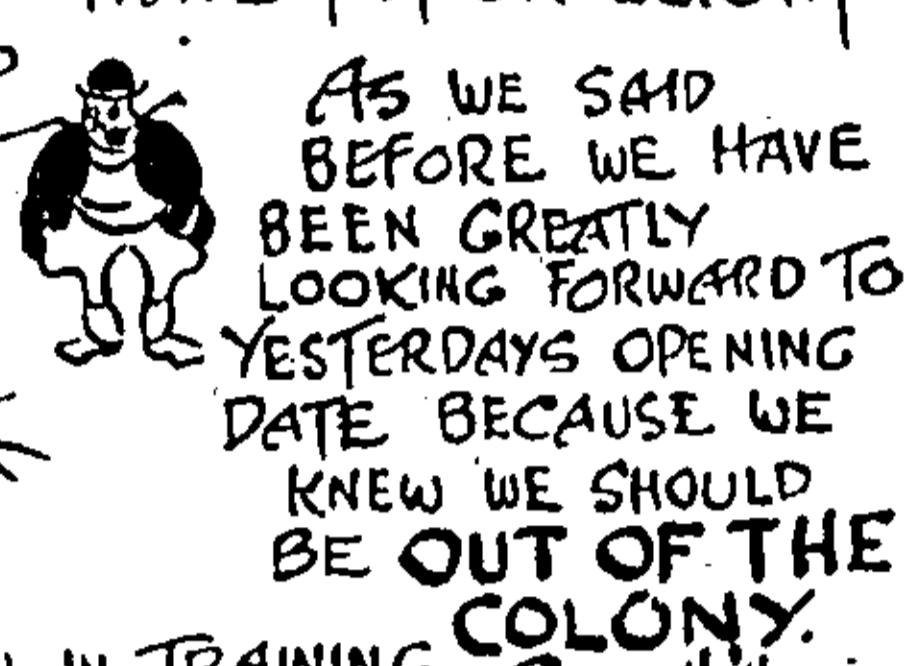 AS WE SAID
BEFORE WE HAVE
BEEN GREATLY
LOOKING FORWARD TO
YESTERDAYS OPENING
DATE BECAUSE WE
KNEW WE SHOULD
BE OUT OF THE
COLONY.
IN TRAINING